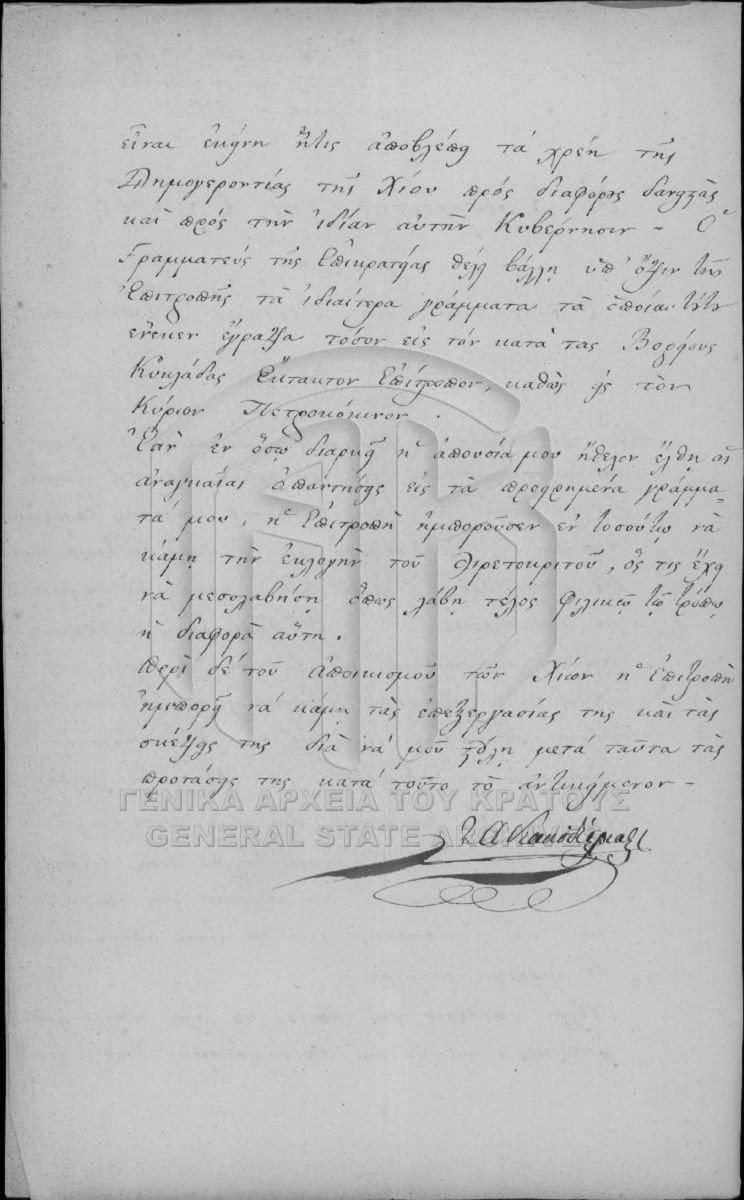 εἶναι ἐκείνη ἥτις ἀποβλέπει τὰ χρέη τῆς
Δημογεροντίας τῆς Χίου πρός διαφόρους δανειστὰς
καὶ πρός τὴν ἰδίαν αὐτὴν Κυβέρνησιν. Ὁ
Γραμματεύς τῆς Ἐπικρατείας θέλει βάλλη ὑπ' ὄψιν τῆς
Ἐπιτροπῆς τὰ ἰδιαίτερα γράμματα τὰ ὁποῖα τούτου
ἕνεκεν ἔγραψα τόσον εἰς τόν κατὰ τας Βορείους
Κυκλάδας Ἔκτακτον Ἐπίτροπον, καθὼς εἰς τὸν
Κύριον Πετροκόκινον.
Ἐὰν ἐν ὅσῳ διαρκεῖ ἡ ἀπουσία μου ἤθελον ἔλθῃ αἱ
ἀναγκαῖαι ἀπαντήσεις εἰς τὰ προειρημένα γράμμα-
τά μου, ἡ Ἐπιτροπὴ ἠμποροῦσεν ἐν τοσούτῳ νὰ
κάμῃ τὴν ἐκλογὴν τοῦ αἱρετοκριτοῦ, ὅς τις ἔχει
νὰ μεσολαβήσῃ ὅπως λάβῃ τέλος φιλικῷ τῷ τρόπῳ
ἡ διαφορὰ αὕτη.
Περὶ δέ τοῦ ἀποικισμοῦ τῶν Χίον ἡ Ἐπιτροπὴ
ἠμπορεῖ νὰ κάμῃ τὰς ἐπεξεργασίας της καὶ τὰς
σκέψεις της διὰ νά μοῦ στείλῃ μετά ταῦτα τὰς
προτάσεις της κατά τοῦτο τὸ ἀντικείμενον -
Ι Α Καποδίστριας
ΓΕΝΙΚΑ ΑΡΧΕΙΑ ΤΟΥ ΚΡΑΤΟΥΣ
GENERAL STATE